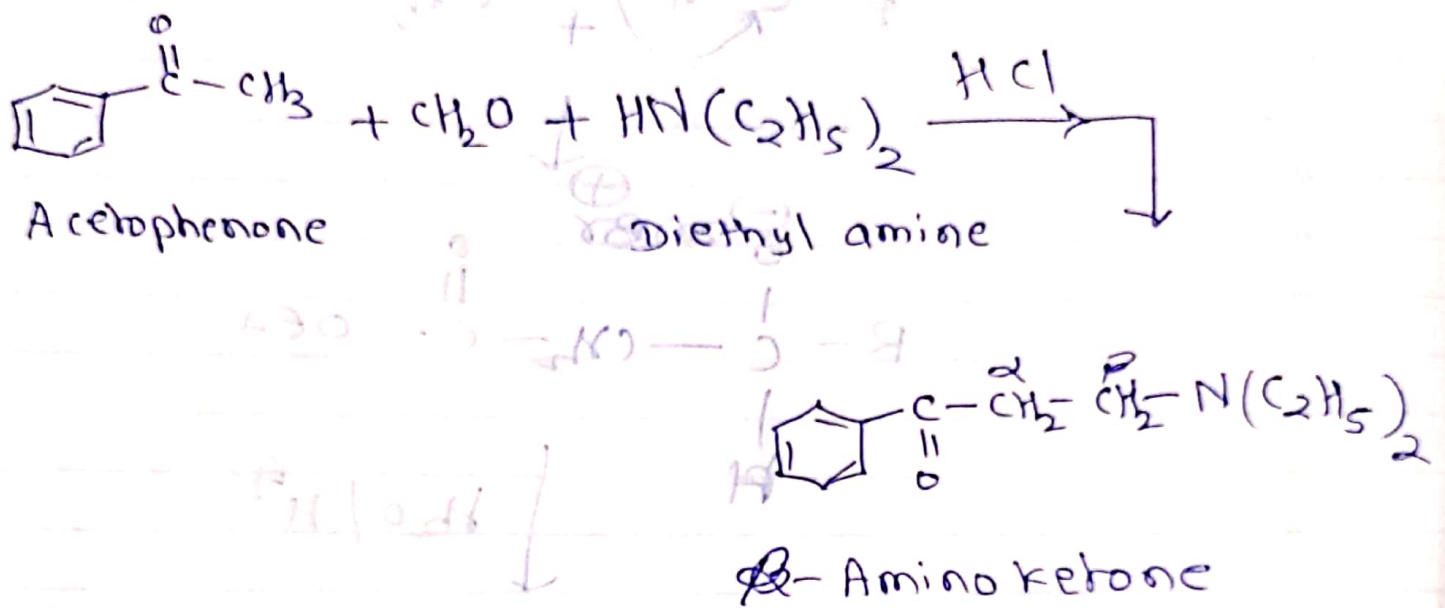 O
||
C – CH₃ + CH₂O + HN(C₂H₅)₂ HCl
Acetophenone Diethyl amine
C – CH₂ – CH₂ – N(C₂H₅)₂
α β
||
O
β – Amino ketone